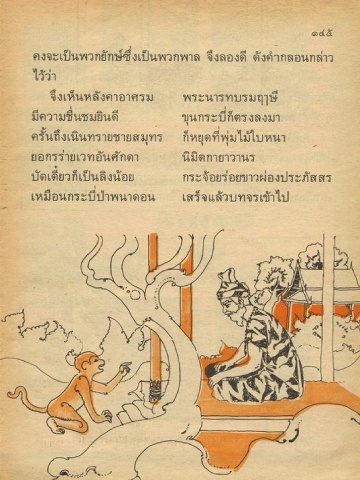 ๑๔๕
คงจะเป็นพวกยักษ์ซึ่งเป็นพวกพาล จึงลองดี ดังคำกลอนกล่าว
ไว้ว่า
จึงเห็นหลังคาอาศรม พระนารทบรมฤๅษี
มีความชื่นชมยินดี ขุนกระบี่ก็ตรงลงมา
ครั้นถึงเนินทรายชายสมุทร ก็หยุดที่พุ่มไม้ใบหนา
ยอกรร่ายเวทอันศักดา นิมิตกายาวานร
บัดเดี๋ยวก็เป็นลิงน้อย กระจ้อยร่อยขาวผ่องประภัสสร
เหมือนกระบี่ป่าพนาดอน เสร็จแล้วบทจรเข้าไป